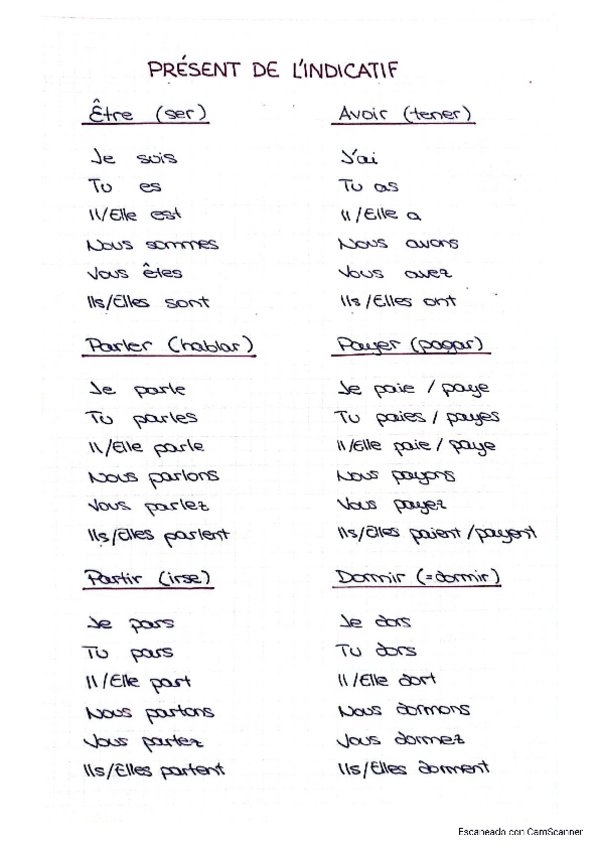 PRÉSENT DE L'INDICATIF
Être (ser)
Je suis
Tu es
Il/Elle est
Nous sommes
Vous êtes
Ils/Elles sont
Avoir (tener)
J'ai
Tu as
Il/Elle a
Nous avons
Vous avez
Ils/Elles ont
Parler (hablar)
Je parle
Tu parles
Il/Elle parle
Nous parlons
Vous parlez
Ils/Elles parlent
Payer (pagar)
Je paie / paye
Tu paies / payes
Il/Elle paie / paye
Nous payons
Vous payez
Ils/Elles paient / payent
Partir (irse)
Je pars
Tu pars
Il/Elle part
Nous partons
Vous partez
Ils/Elles partent
Dormir (=dormir)
Je dors
Tu dors
Il/Elle dort
Nous dormons
Vous dormez
Ils/Elles dorment
Escaneado con CamScanner